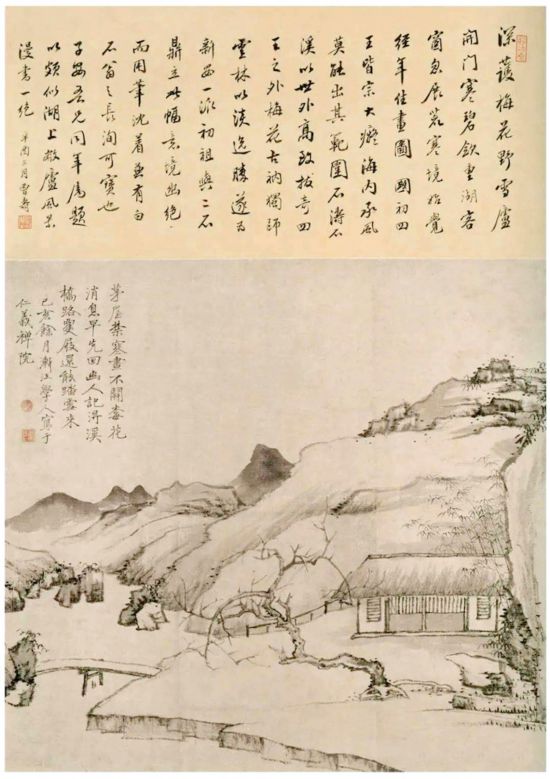 深護梅花野雪廬
開門寒碧飲重湖客
窗忽展荒寒境始覺
經年住畫圖 國初四
王皆宗大癡海內承風
莫能出其範圍石濤石
溪以世外高致拔奇四
王之外梅花古衲獨師
雲林以淡逸勝遂為
新安一派初祖與二石
鼎立此幅意境幽絕
而用筆沈着兼有白
石翁之長洵可寶也
子安吾兄同年屬題
以頗似湖上敝廬風景
漫書一絕 辛酉 月曾壽
茅屋禁寒晝不開梅花
消息早先回幽人記得溪
橋路雙屐還能踏雪來
己亥餘月漸江學人寫于
仁義禪院